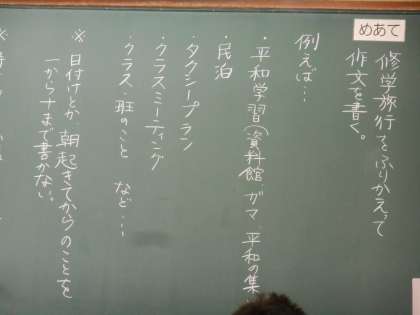 めあて
修学旅行をふりかえって
作文を書く。
例えば…
・平和学習(資料館 ガマ 平和の集
・民泊
・タクシープラン
・クラスミーティング
・クラス・班のこと など…
※日付けとか 朝起きてからのことを
一から十まで書かない。
※